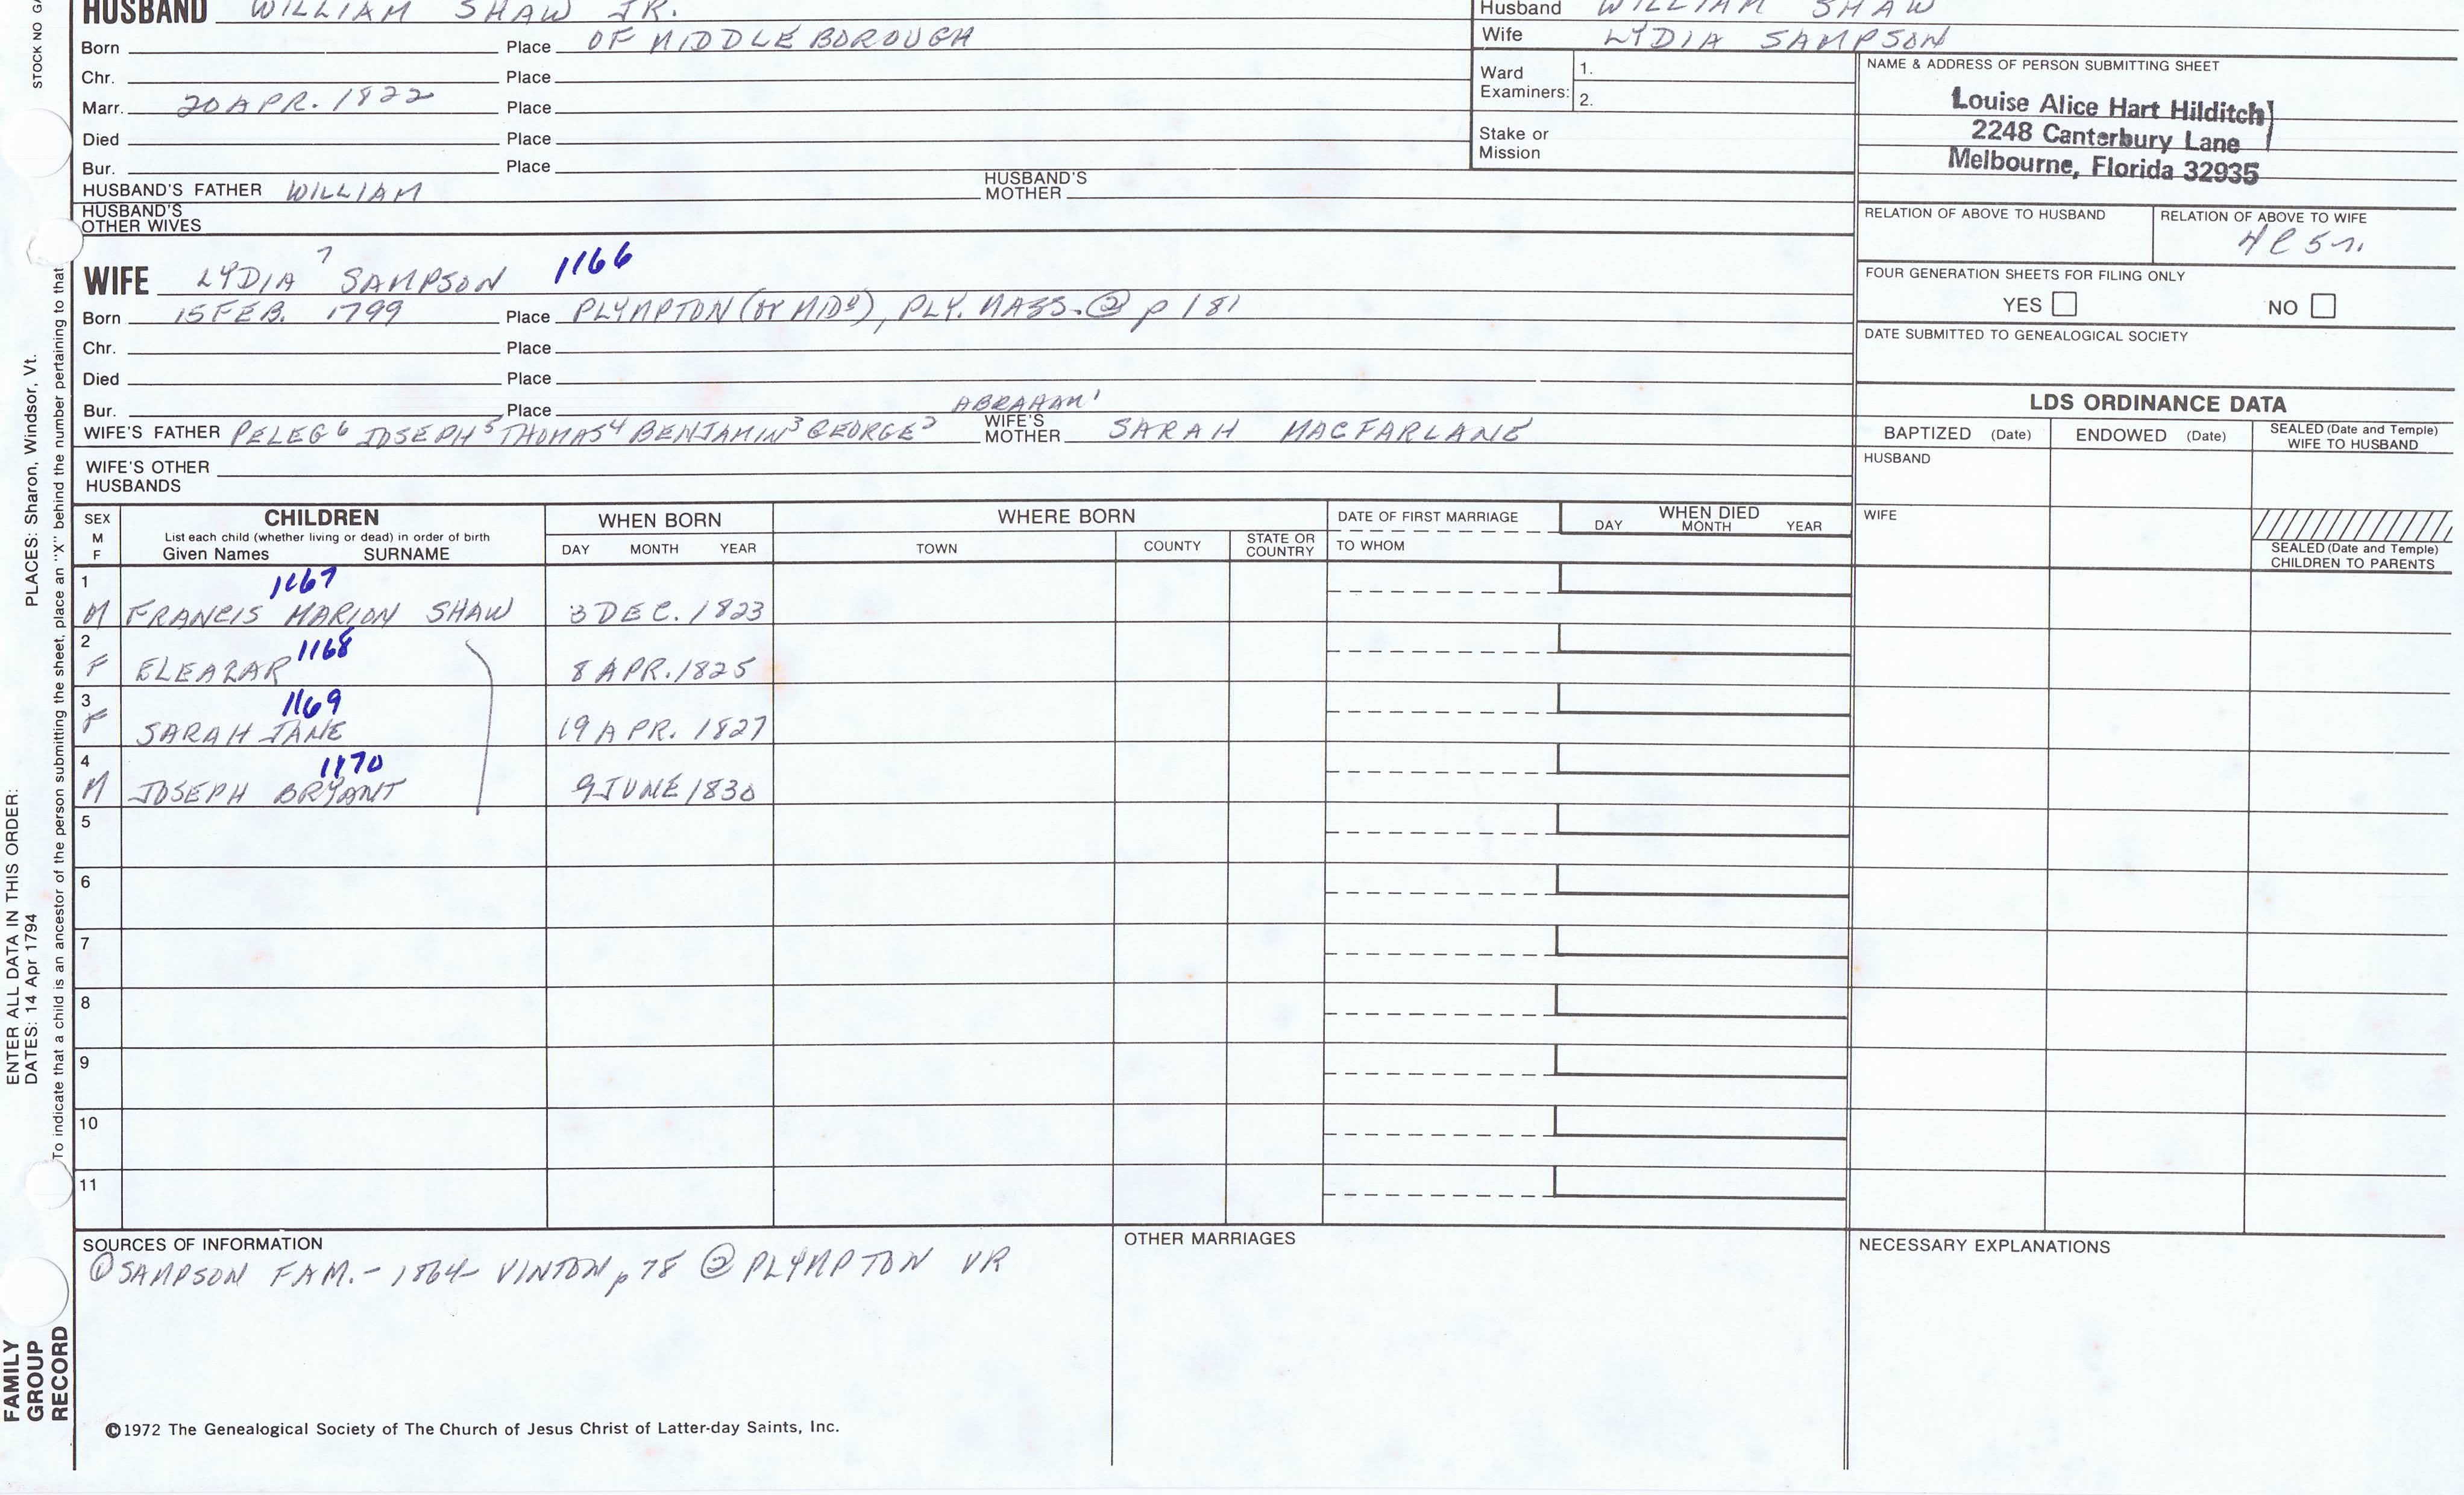 HUSBAND WILLIAM SHAW JR.
Husband WILLIAM SHAW
Wife LYDIA SAMPSON
Born Place OF MIDDLEBOROUGH
Chr. Place
Marr. 20 APR. 1822 Place
Died Place
Bur. Place
HUSBAND'S FATHER WILLIAM HUSBAND'S MOTHER
HUSBAND'S OTHER WIVES
Ward Examiners: 1.
2.
Stake or Mission
NAME & ADDRESS OF PERSON SUBMITTING SHEET
Louise Alice Hart Hilditch
2248 Canterbury Lane
Melbourne, Florida 32935
RELATION OF ABOVE TO HUSBAND RELATION OF ABOVE TO WIFE
FOUR GENERATION SHEETS FOR FILING ONLY
YES NO
DATE SUBMITTED TO GENEALOGICAL SOCIETY
WIFE LYDIA 7 SAMPSON 1166
Born 15 FEB. 1799 Place PLYMPTON (or MIDº), PLY. MASS. ② p 181
Chr. Place
Died Place
Bur. Place
ABRAHAM 1
WIFE'S FATHER PELEG 6 JOSEPH 5 THOMAS 4 BENJAMIN 3 GEORGE 2 WIFE'S MOTHER SARAH MACFARLANE
WIFE'S OTHER HUSBANDS
LDS ORDINANCE DATA
BAPTIZED (Date) ENDOWED (Date) SEALED (Date and Temple) WIFE TO HUSBAND
HUSBAND
WIFE
SEALED (Date and Temple) CHILDREN TO PARENTS
SEX M F CHILDREN WHEN BORN WHERE BORN DATE OF FIRST MARRIAGE WHEN DIED
List each child (whether living or dead) in order of birth
Given Names SURNAME DAY MONTH YEAR TOWN COUNTY STATE OR COUNTRY TO WHOM DAY MONTH YEAR
1 1167
M FRANCIS MARION SHAW 3 DEC. 1823
2 1168
F ELEAZAR 8 APR. 1825
3 1169
F SARAH JANE 19 APR. 1827
4 1170
M JOSEPH BRYANT 9 JUNE 1830
5
6
7
8
9
10
11
SOURCES OF INFORMATION
① SAMPSON FAM. - 1864 VINTON p 78 ② PLYMPTON VR
OTHER MARRIAGES
NECESSARY EXPLANATIONS
©1972 The Genealogical Society of The Church of Jesus Christ of Latter-day Saints, Inc.
STOCK NO
ENTER ALL DATA IN THIS ORDER:
DATES: 14 Apr 1794 PLACES: Sharon, Windsor, Vt.
To indicate that a child is an ancestor of the person submitting the sheet, place an "X" behind the number pertaining to that
FAMILY GROUP RECORD